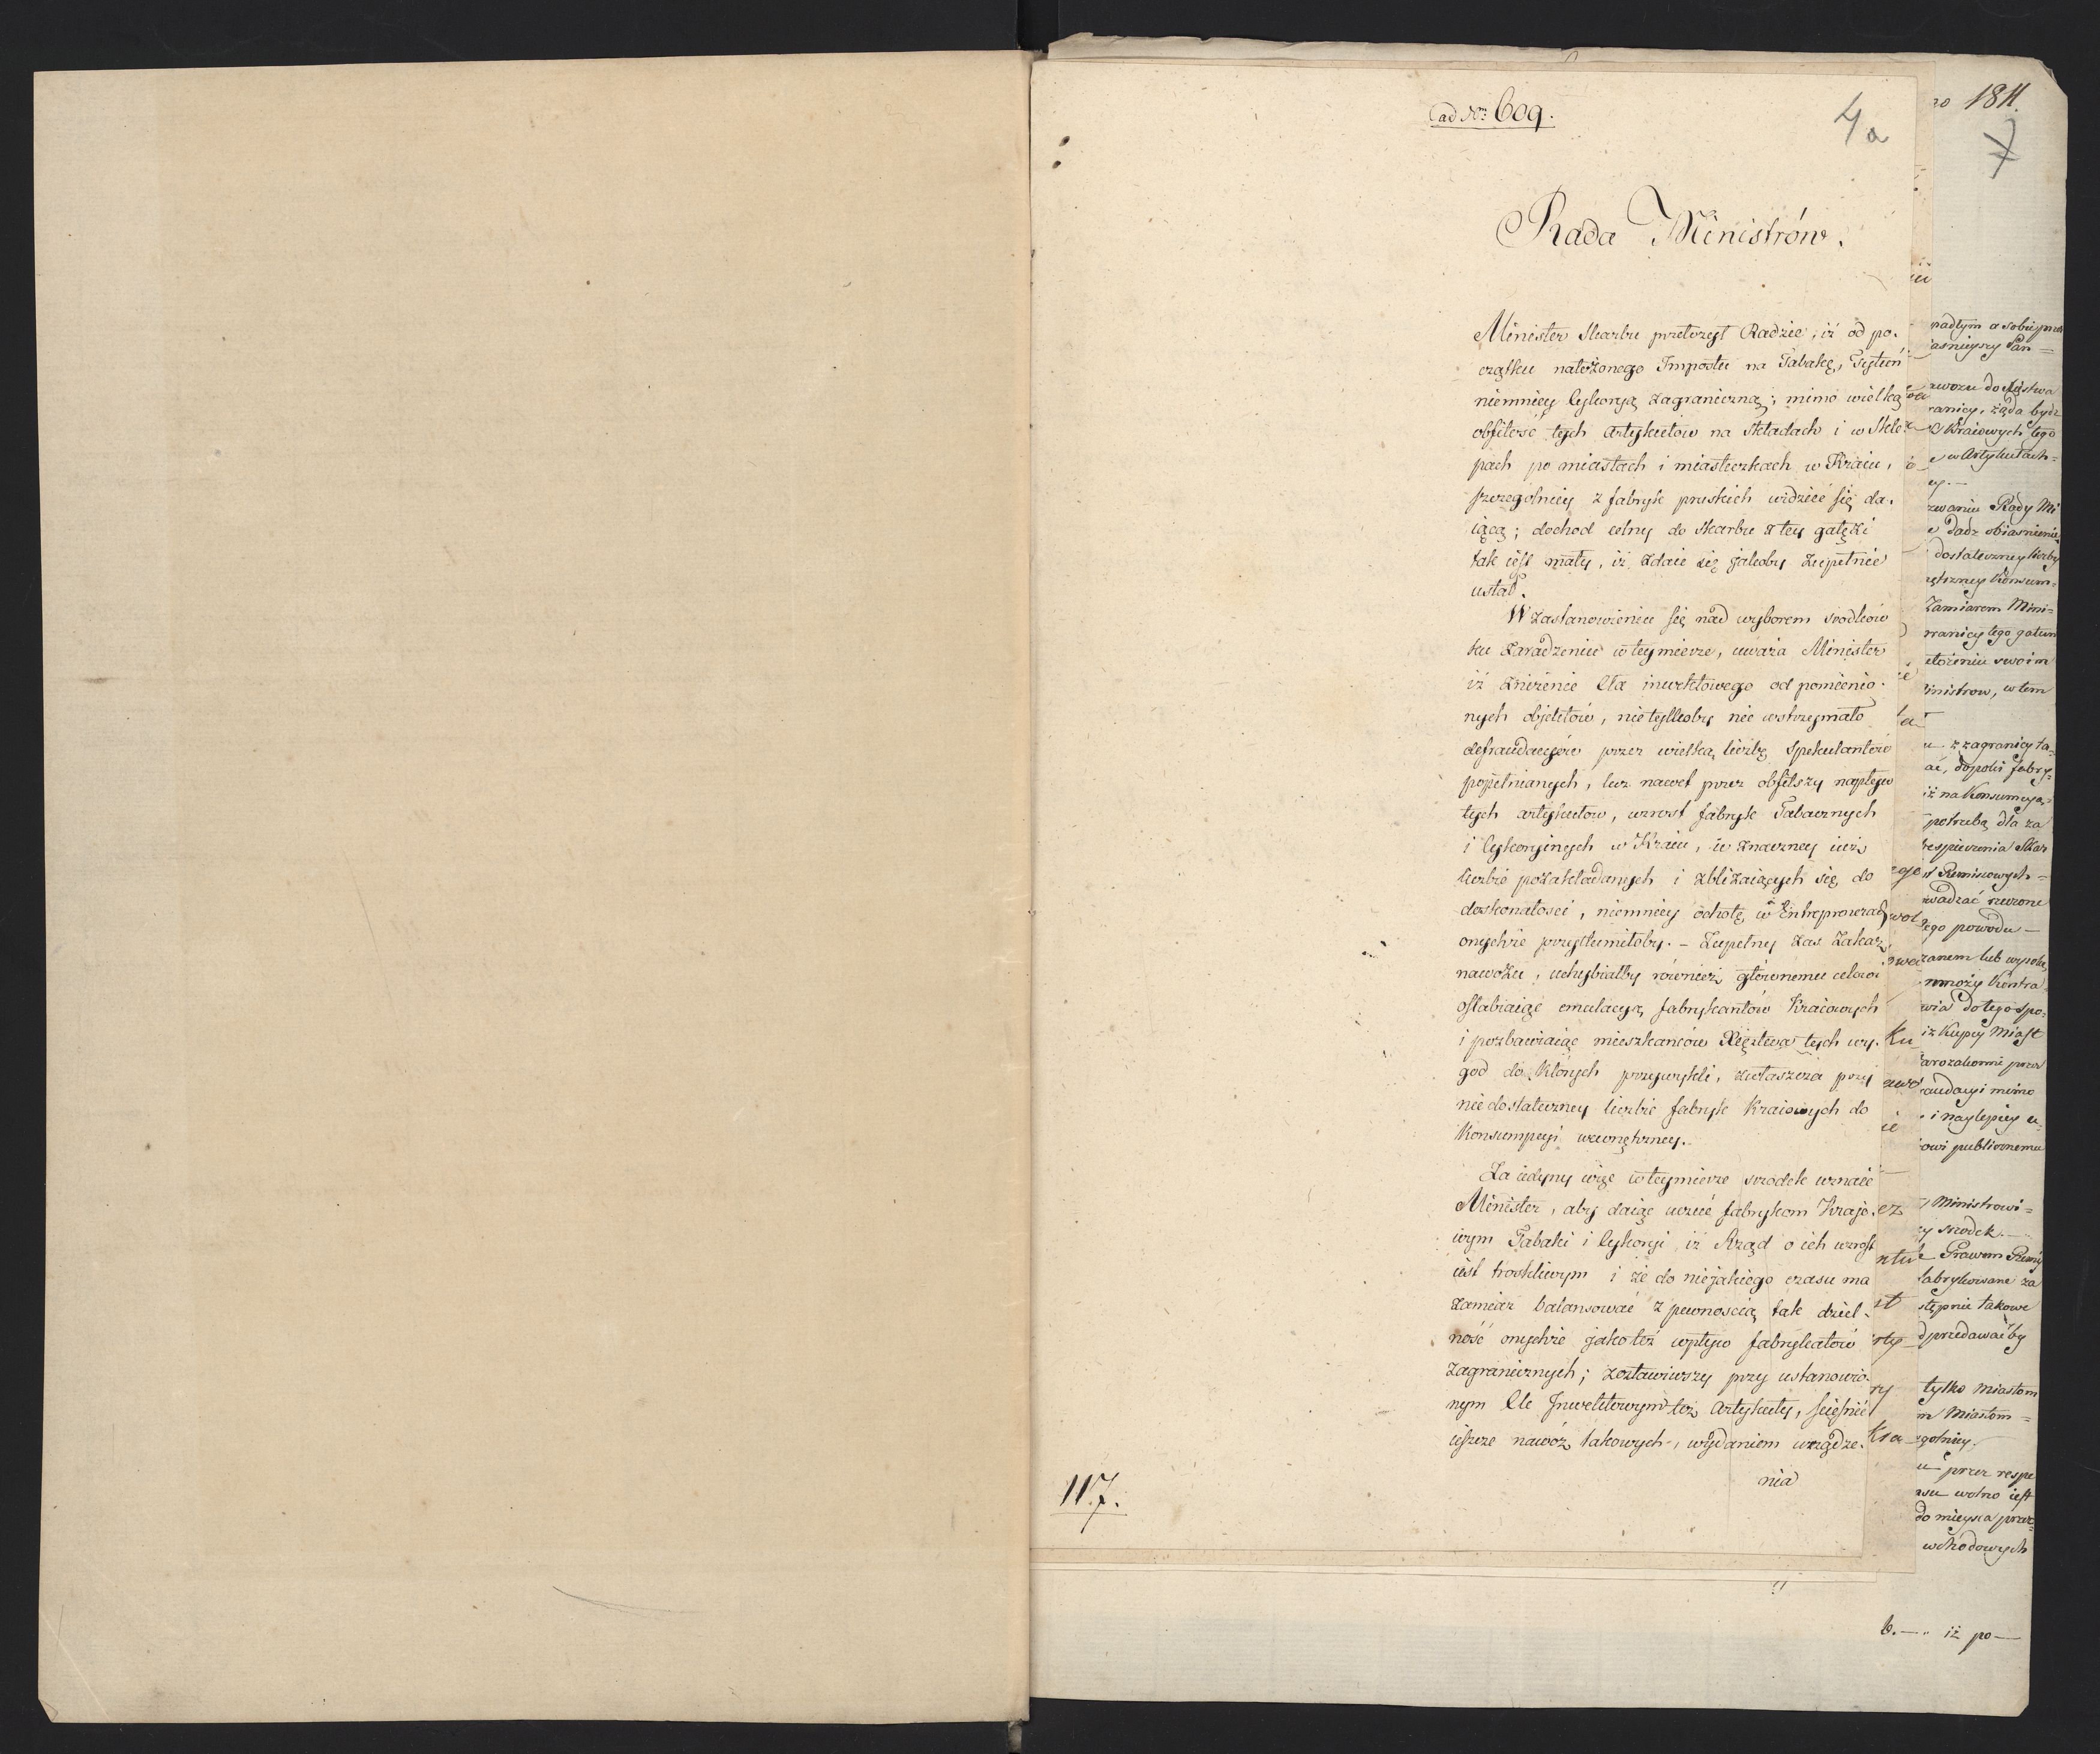 ad Nrm 609.
4a
Rada Ministrów.
Minister Skarbu przełożył Radzie, iż od po-
czątku nałożonego Impostu na Tabakę, Tytuń
niemniey Cykoryą zagraniczną; mimo wielką
obfitość tych Artykułów na Składach i w Skle-
pach po miastach i miasteczkach w Kraiu,
szczegolniey z fabryk pruskich widzieć się da-
iącą; dochod celny do Skarbu z tey gałęzi
tak iest mały, iż zdaie się jakoby zupełnie
ustał.
W zastanowieniu się nad wyborem srodków
ku zaradzeniu w tey mierze, uważa Minister
iż zniżenie Cła inwektowego od pomienio-
nych objektów, nie tylkoby nie wstrzymało
defraudacyów przez wielką liczbę Spekulantów
popełnianych, lecz nawet przez obfitszy napływ
tych artykułow, wzrost fabryk Tabacznych
i Cykoryinych w Kraiu, w znaczney iuż
liczbie pozakładanych i zbliżaiących się do
doskonałosci, niemniey ochotę w Entreprenerach
onychże przytłumiłoby. – Zupełny zas Zakaz
nawozu, uchybiałby również głównemu celowi
osłabiaiąc emulacyą fabrykantów Kraiowych
i pozbawiaiąc mieszkańców Xięztwa tych wy-
god do których przywykli, zwłaszcza przy
niedostateczney liczbie fabryk Kraiowych do
Konsumpcyi wewnętrzney.
Za iedyny więc w tey mierze srzodek uznaie
Minister, aby daiąc uczuć fabrykom Krajo-
wym Tabaki i Cykoryi iż Rząd o ich wzrost
iest troskliwym i że do niejakiego czasu ma
zamiar balansować z pewnoscią tak dziel-
ność onychże jakoteż wpływ fabrykatów
zagranicznych; zostawiwszy przy ustanowio-
nym Cle Inwektowym też Artykuły, scieśnić
ieszcze nawóz takowych, wydaniem urządze-
nia
117.
1811.
7
padłym a sobie przez
asnieyszy Pan
awozu do Xięstwa
ranicy, żąda bydz
Kraiowych tego
w Artykułach
zwaniu Rady Mi
dadz obiasnienie
dostateczney liczby
ętrzney Konsum-
Zamiarem Mini-
ranicy tego gatun
łożeniu swoim
inistrow, w tem
z zagranicy ta-
ać, dopoki fabry-
iż na Konsumcyą
potrzebą dla za
espieczenia Skar
wadzać rzeczone
ego powodu
zanem lub wysoke
nmoży Kontra
wia do tego spo-
iż Kupcy Miast
arozakonni przez
raudacyi mimo
i naylepiey u-
owi publicznemu
Ministrowi
y srodek.
Prawem
fabrykowane za
stępnie takowe
dprzedawać by
tylko miastom
m Miastom
egolniey.
przez respe
asu wolno iest
do mieysca prze-
wchodowych
b. iż po